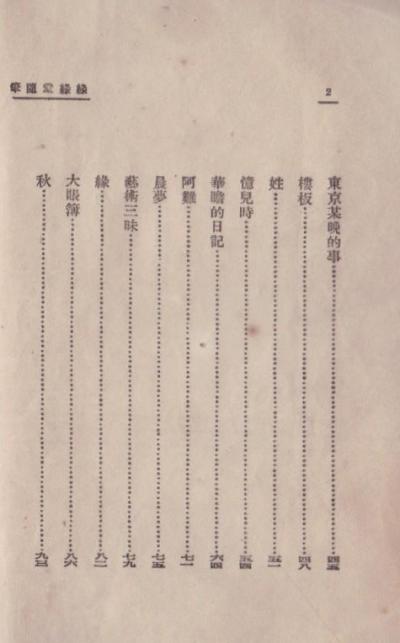 2
緣緣堂隨筆
東京某晚的事……四五
樓板……四八
姓……五一
憶兒時……五四
華瞻的日記……六四
阿難……七一
晨夢……七五
藝術三昧……七九
緣……八二
大賬簿……八六
秋……九三